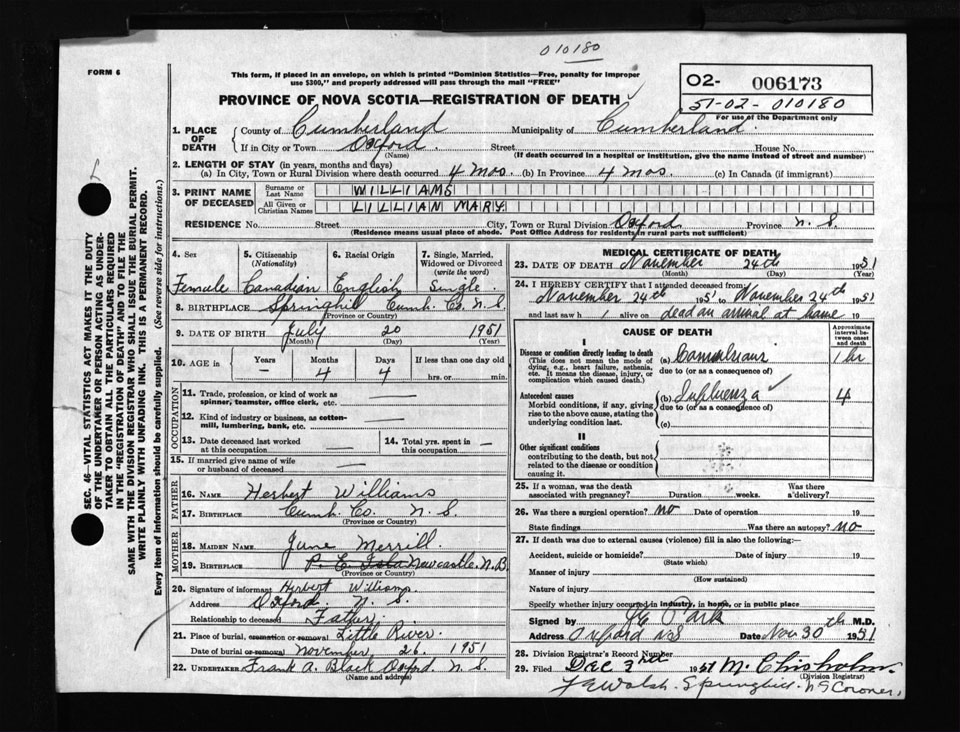 010180
FORM 6
This form, if placed in an envelope, on which is printed "Dominion Statistics—Free, penalty for improper
use $300," and properly addressed will pass through the mail "FREE"
02- 006173
51-02-010180
For use of the Department only
PROVINCE OF NOVA SCOTIA—REGISTRATION OF DEATH
1. PLACE OF DEATH County of Cumberland Municipality of Cumberland.
If in City or Town Oxford. Street House No.
(Name) (If death occurred in a hospital or institution, give the name instead of street and number)
2. LENGTH OF STAY (in years, months and days)
(a) In City, Town or Rural Division where death occurred 4 mos. (b) In Province 4 mos. (c) In Canada (if immigrant)
3. PRINT NAME OF DECEASED Surname or Last Name WILLIAMS
All Given or Christian Names LILLIAN MARY
RESIDENCE No. Street City, Town or Rural Division Oxford Province N. S.
(Residence means usual place of abode. Post Office Address for residents in rural parts not sufficient)
4. Sex 5. Citizenship (Nationality) 6. Racial Origin 7. Single, Married, Widowed or Divorced (write the word)
Female Canadian English Single
8. BIRTHPLACE Springhill Cumb. Co. N. S.
(Province or Country)
9. DATE OF BIRTH July 20 1951
(Month) (Day) (Year)
10. AGE in Years Months Days If less than one day old
— 4 4 hrs. or min.
OCCUPATION
11. Trade, profession, or kind of work as
spinner, teamster, office clerk, etc. —
12. Kind of industry or business, as cotton-
mill, lumbering, bank, etc. —
13. Date deceased last worked
at this occupation — 14. Total yrs. spent in
this occupation —
15. If married give name of wife
or husband of deceased —
FATHER
16. NAME Herbert Williams
17. BIRTHPLACE Cumb. Co. N. S.
(Province or Country)
MOTHER
18. MAIDEN NAME June Merrill.
19. BIRTHPLACE P. E. Isla Newcastle, N.B.
(Province or Country)
20. Signature of informant Herbert Williams.
Address Oxford, N. S.
Relationship to deceased Father
21. Place of burial, cremation or removal Little River.
Date of burial or removal November, 26. 1951
22. UNDERTAKER Frank A. Black Oxford. N. S.
(Name and address)
MEDICAL CERTIFICATE OF DEATH
23. DATE OF DEATH November 24th 1951
(Month) (Day) (Year)
24. I HEREBY CERTIFY that I attended deceased from:
November 24th 1951 to November 24th 1951
and last saw h alive on dead on arrival at home 19
CAUSE OF DEATH
Approximate interval between onset and death
I
Disease or condition directly leading to death
(This does not mean the mode of
dying, e.g., heart failure, asthenia,
etc. It means the disease, injury, or
complication which caused death.)
(a) Convulsions 1 hr
due to (or as a consequence of)
Antecedent causes
Morbid conditions, if any, giving
rise to the above cause, stating the
underlying condition last.
(b) Influenza 4
due to (or as a consequence of)
(c)
II
Other significant conditions
contributing to the death, but not
related to the disease or condition
causing it.
25. If a woman, was the death
associated with pregnancy? Duration weeks. Was there
a delivery?
26. Was there a surgical operation? no Date of operation 19
State findings Was there an autopsy? no
27. If death was due to external causes (violence) fill in also the following:—
Accident, suicide or homicide? Date of injury 19
(State which)
Manner of injury
(How sustained)
Nature of injury
Specify whether injury occurred in industry, in home, or in public place
Signed by Park M.D.
Address Oxford NS Date Nov 30th 1951
28. Division Registrar's Record Number
29. Filed Dec 3rd 1951 M. Chisholm.
(Division Registrar)
Walsh. Springhill. NS Coroner.
SEC. 46—VITAL STATISTICS ACT MAKES IT THE DUTY
OF THE UNDERTAKER OR PERSON ACTING AS UNDER-
TAKER TO OBTAIN ALL THE PARTICULARS REQUIRED
IN THE "REGISTRATION OF DEATH" AND TO FILE THE
SAME WITH THE DIVISION REGISTRAR WHO SHALL ISSUE THE BURIAL PERMIT.
WRITE PLAINLY WITH UNFADING INK. THIS IS A PERMANENT RECORD.
Every item of information should be carefully supplied. (See reverse side for instructions.)